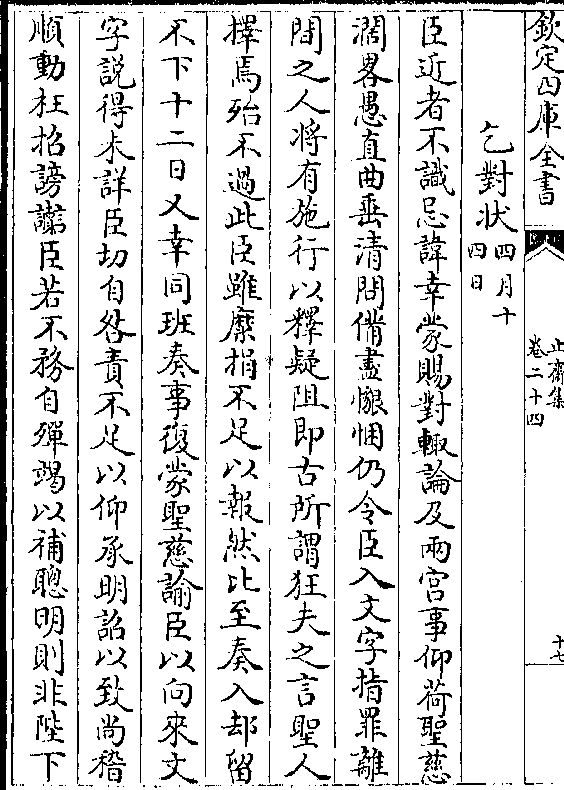 欽定四庫全書
止齋集
卷二十四
十七
乞對狀四月十四日
臣近者不識忌諱幸蒙賜對輙論及兩宫事仰荷聖慈
濶畧愚直曲垂清問備盡懇悃仍令臣入文字指罪離
間之人將有施行以釋疑阻即古所謂狂夫之言聖人
擇焉殆不過此臣雖糜捐不足以報然比至奏入却留
不下十二日又幸同班奏事復蒙聖慈諭臣以向來文
字説得未詳臣切自咎責不足以仰承明詔以致尚稽
順動枉招謗讟臣若不務自殫竭以補聰明則非陛下